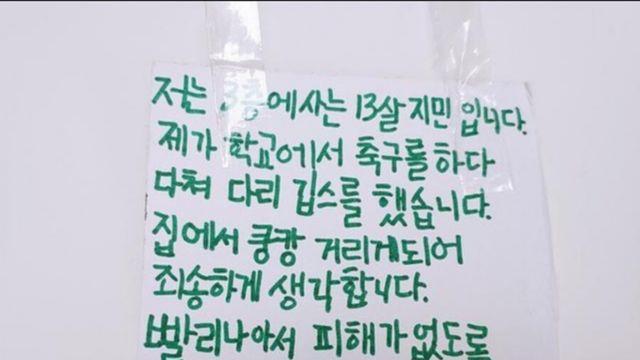 저는 3층에사는 13살 지민 입니다.
제가 학교에서 축구를 하다
다쳐 다리 깁스를 했습니다.
집에서 쿵캉 거리게되어
죄송하게 생각합니다.
빨리나아서 피해가 없도록